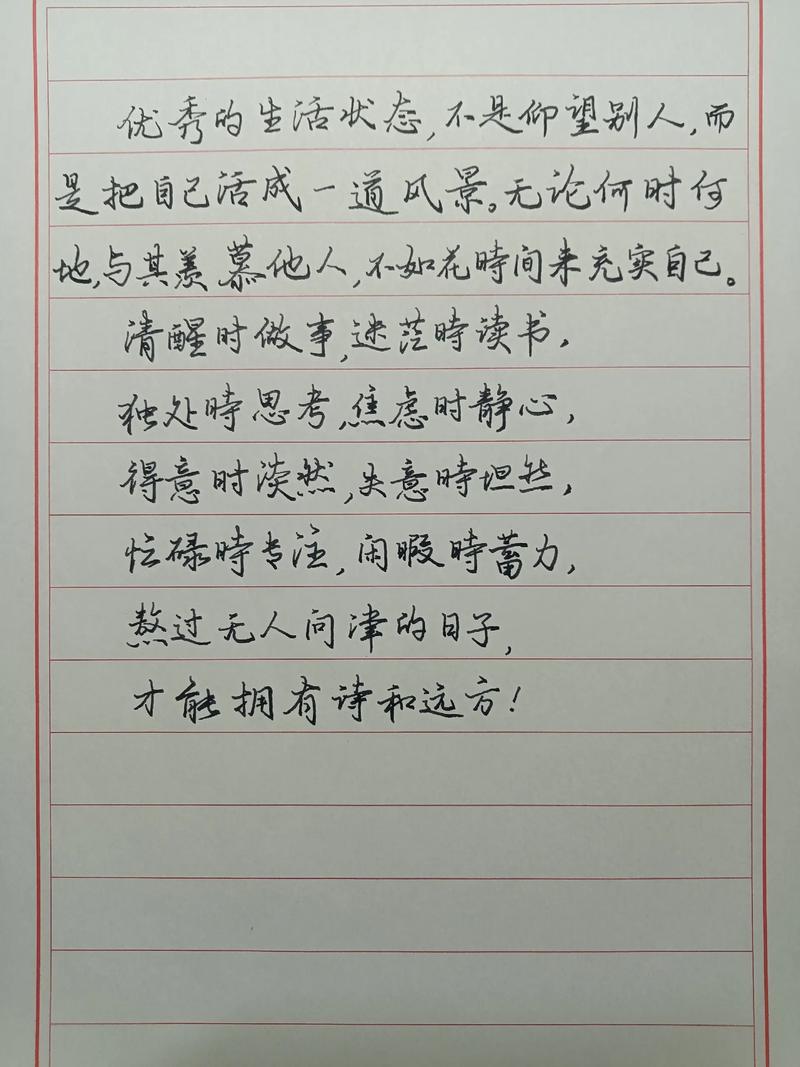 优秀的生活状态,不是仰望别人,而
是把自己活成一道风景。无论何时何
地,与其羡慕他人,不如花時间来充实自己。
清醒时做事,迷茫時读书,
独处時思考,焦虑时静心,
得意时淡然,失意時坦然,
忙碌時专注,闲暇時蓄力,
熬过无人问津的日子,
才能拥有诗和远方!